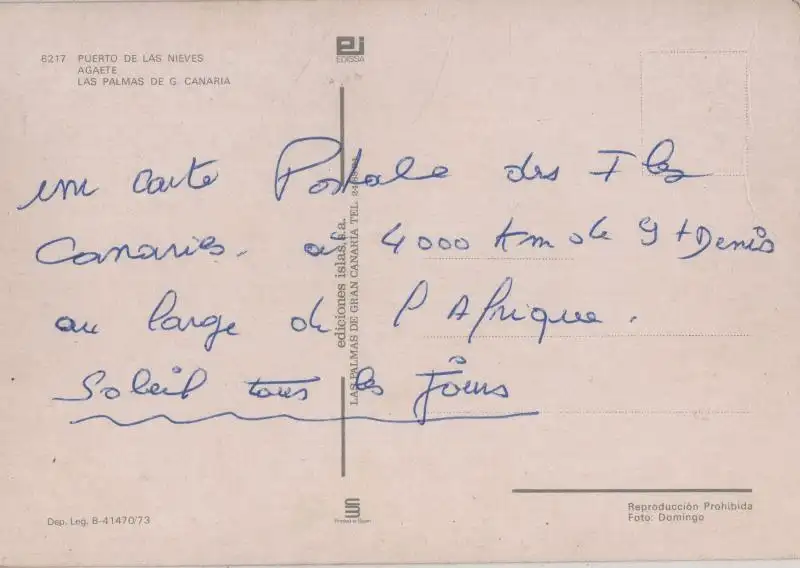 6217 PUERTO DE LAS NIEVES
AGAETE
LAS PALMAS DE G. CANARIA
EDISSA
une carte Postale des Iles
Canaries. à 4000 km de St Denis
au large de l'Afrique.
Soleil tous les Jours
ediciones islas, s.a.
LAS PALMAS DE GRAN CANARIA TEL.
Dep. Leg. B-41470/73
Printed in Spain
Reproducción Prohibida
Foto: Domingo